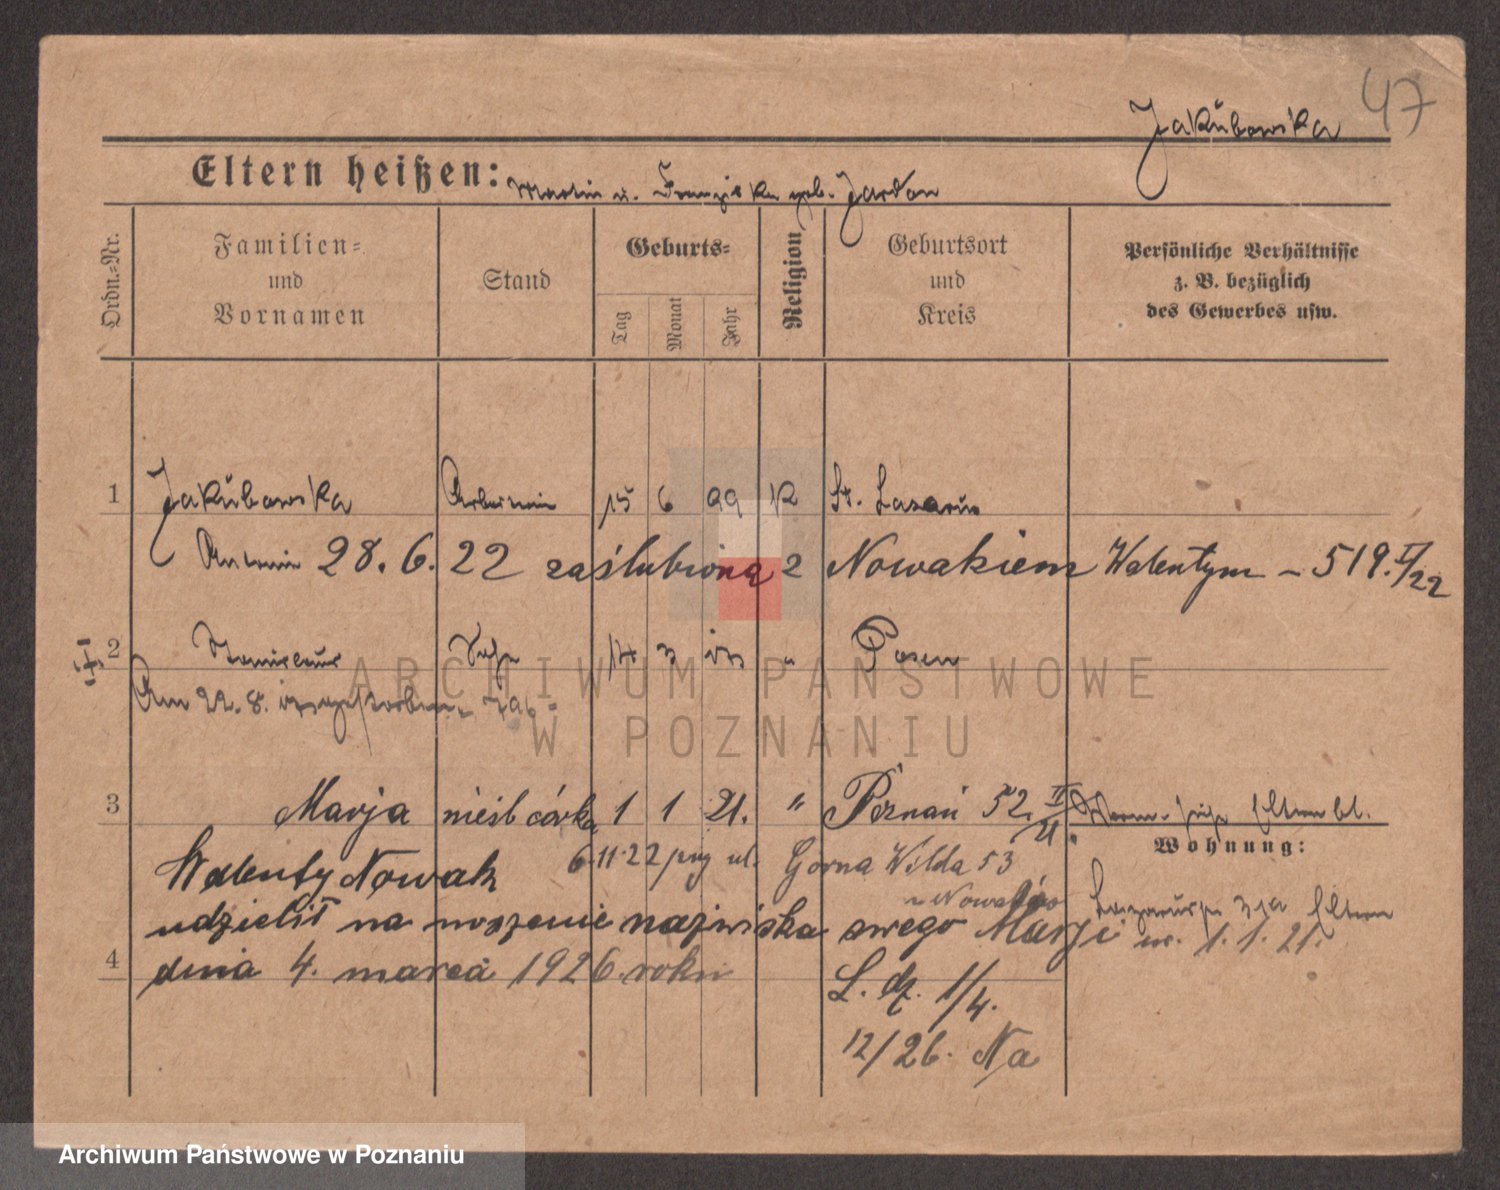 47
Jakubowska
Eltern heißen: Martin u. Franziska geb. Jordan
Ordn.-Nr.
Familien- und Vornamen
Stand
Geburts-
Tag
Monat
Jahr
Religion
Geburtsort und Kreis
Persönliche Verhältnisse z. B. bezüglich des Gewerbes usw.
1 Jakubowska Arbeiterin 15 6 99 K St. Lazarus
28. 6. 22 zaślubioną z Nowakiem Walentym - 519. II/22
2 Stanislaus Sohn 14 3 Posen
Am 22. 8. gestorben
3 Marja nieśl córka 1 1 21. " Poznań 52. II/21.
6.11.22 przy ul. Górna Wilda 53
u Nowaków
Wohnung:
Eltern
Walenty Nowak
udzielił na noszenie nazwiska swego Marji ur. 1. 1. 21.
4 dnia 4. marca 1926 roku
L. dz. 1/4.
12/26. Na
ARCHIWUM PAŃSTWOWE
W POZNANIU
Archiwum Państwowe w Poznaniu